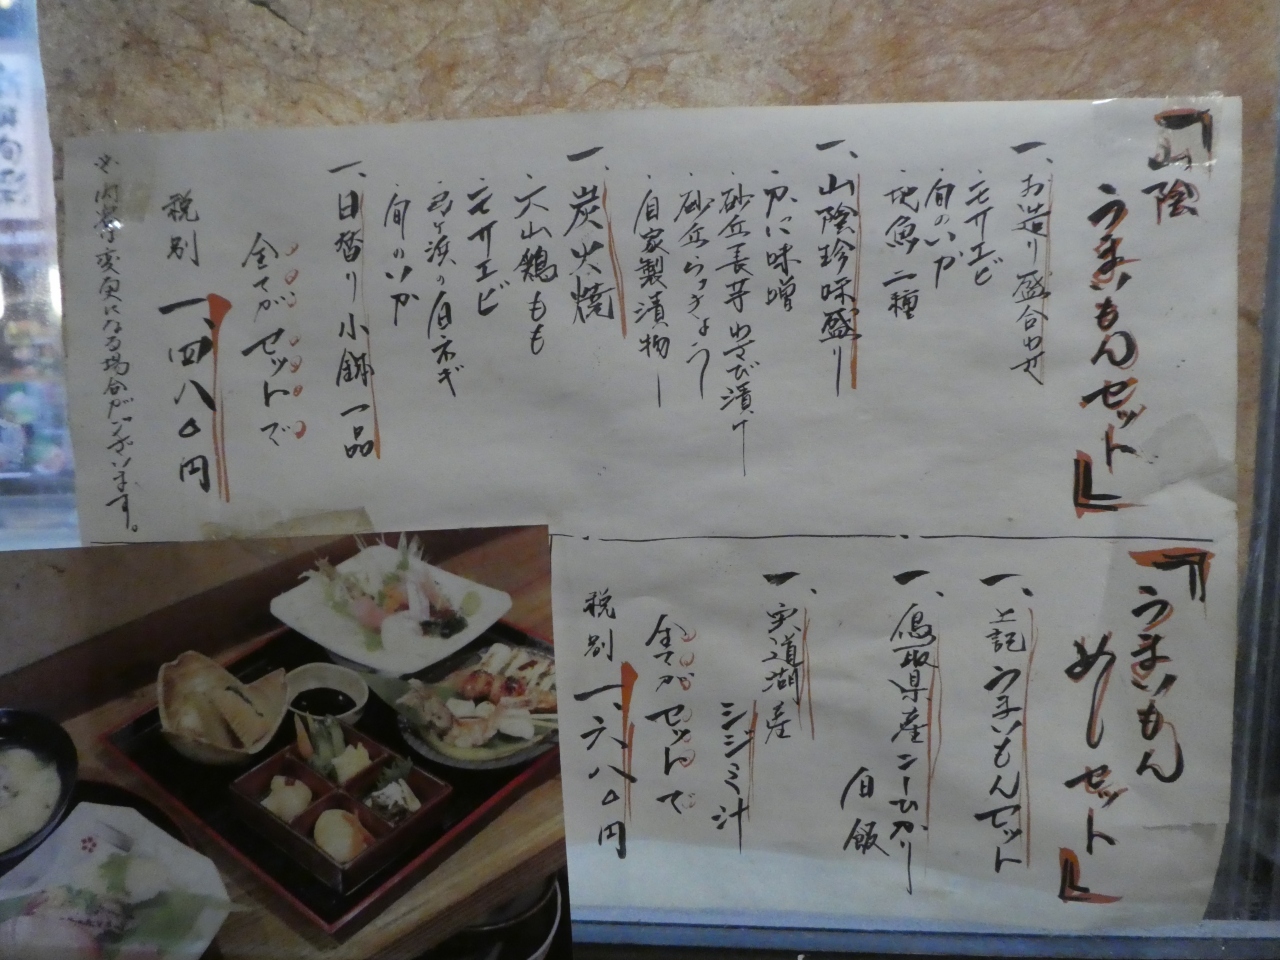 『山陰
うまいもんセット』
一、お造り盛合わせ
・モサエビ
・旬のいか
・地魚二種
一、山陰珍味盛り
・かに味噌
・砂丘長芋わさび漬け
・砂丘らっきょう
・自家製漬物
一、炭火焼
・大山鶏もも
・モサエビ
・弓ヶ浜の白ネギ
・旬のいか
一、日替り小鉢一品
全てがセットで
税別
一、四八〇円
※内容は変更になる場合がございます。
『うまいもん
めしセット』
一、上記うまいもんセット
一、鳥取県産こしひかり
白飯
一、宍道湖産
シジミ汁
全てがセットで
税別
一、六八〇円